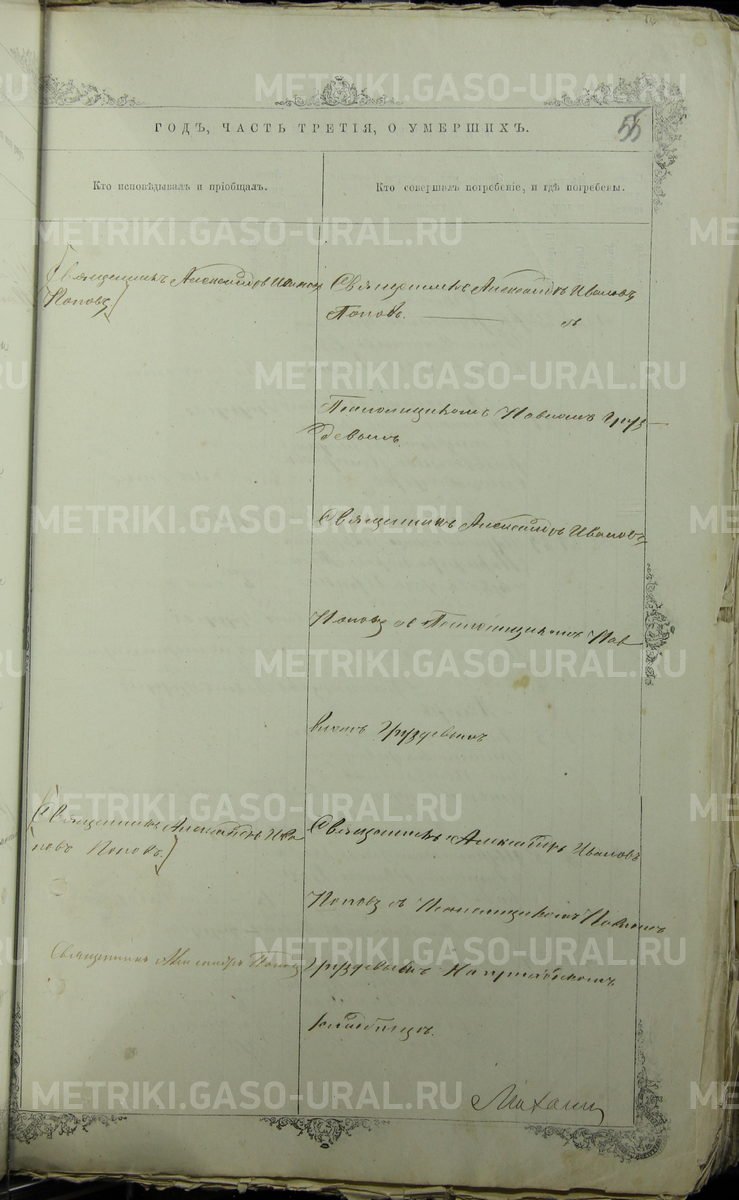 55
ГОДЪ, ЧАСТЬ ТРЕТІЯ, О УМЕРШИХЪ.
Кто исповѣдывалъ и пріобщалъ.
Кто совершалъ погребеніе, и гдѣ погребены.
Священникъ Александръ Иванов
Поповъ
Священникъ Александръ Ивановъ
Поповъ. съ
Псаломщикомъ Павломъ Груз-
девымъ.
Священникъ Александръ Ивановъ
Поповъ съ Псаломщикомъ Пав
ломъ Груздевымъ
Священникъ Александръ Ива
новъ Поповъ.
Священникъ Александръ Поповъ
Священникъ Александръ Ивановъ
Поповъ съ Псаломщикомъ Павломъ
Груздевымъ На приходскомъ
кладбищѣ.
METRIKI.GASO-URAL.RU
METRIKI.GASO-URAL.RU
METRIKI.GASO-URAL.RU
METRIKI.GASO-URAL.RU
METRIKI.GASO-URAL.RU
METRIKI.GASO-URAL.RU
METRIKI.GASO-URAL.RU
METRIKI.GASO-URAL.RU